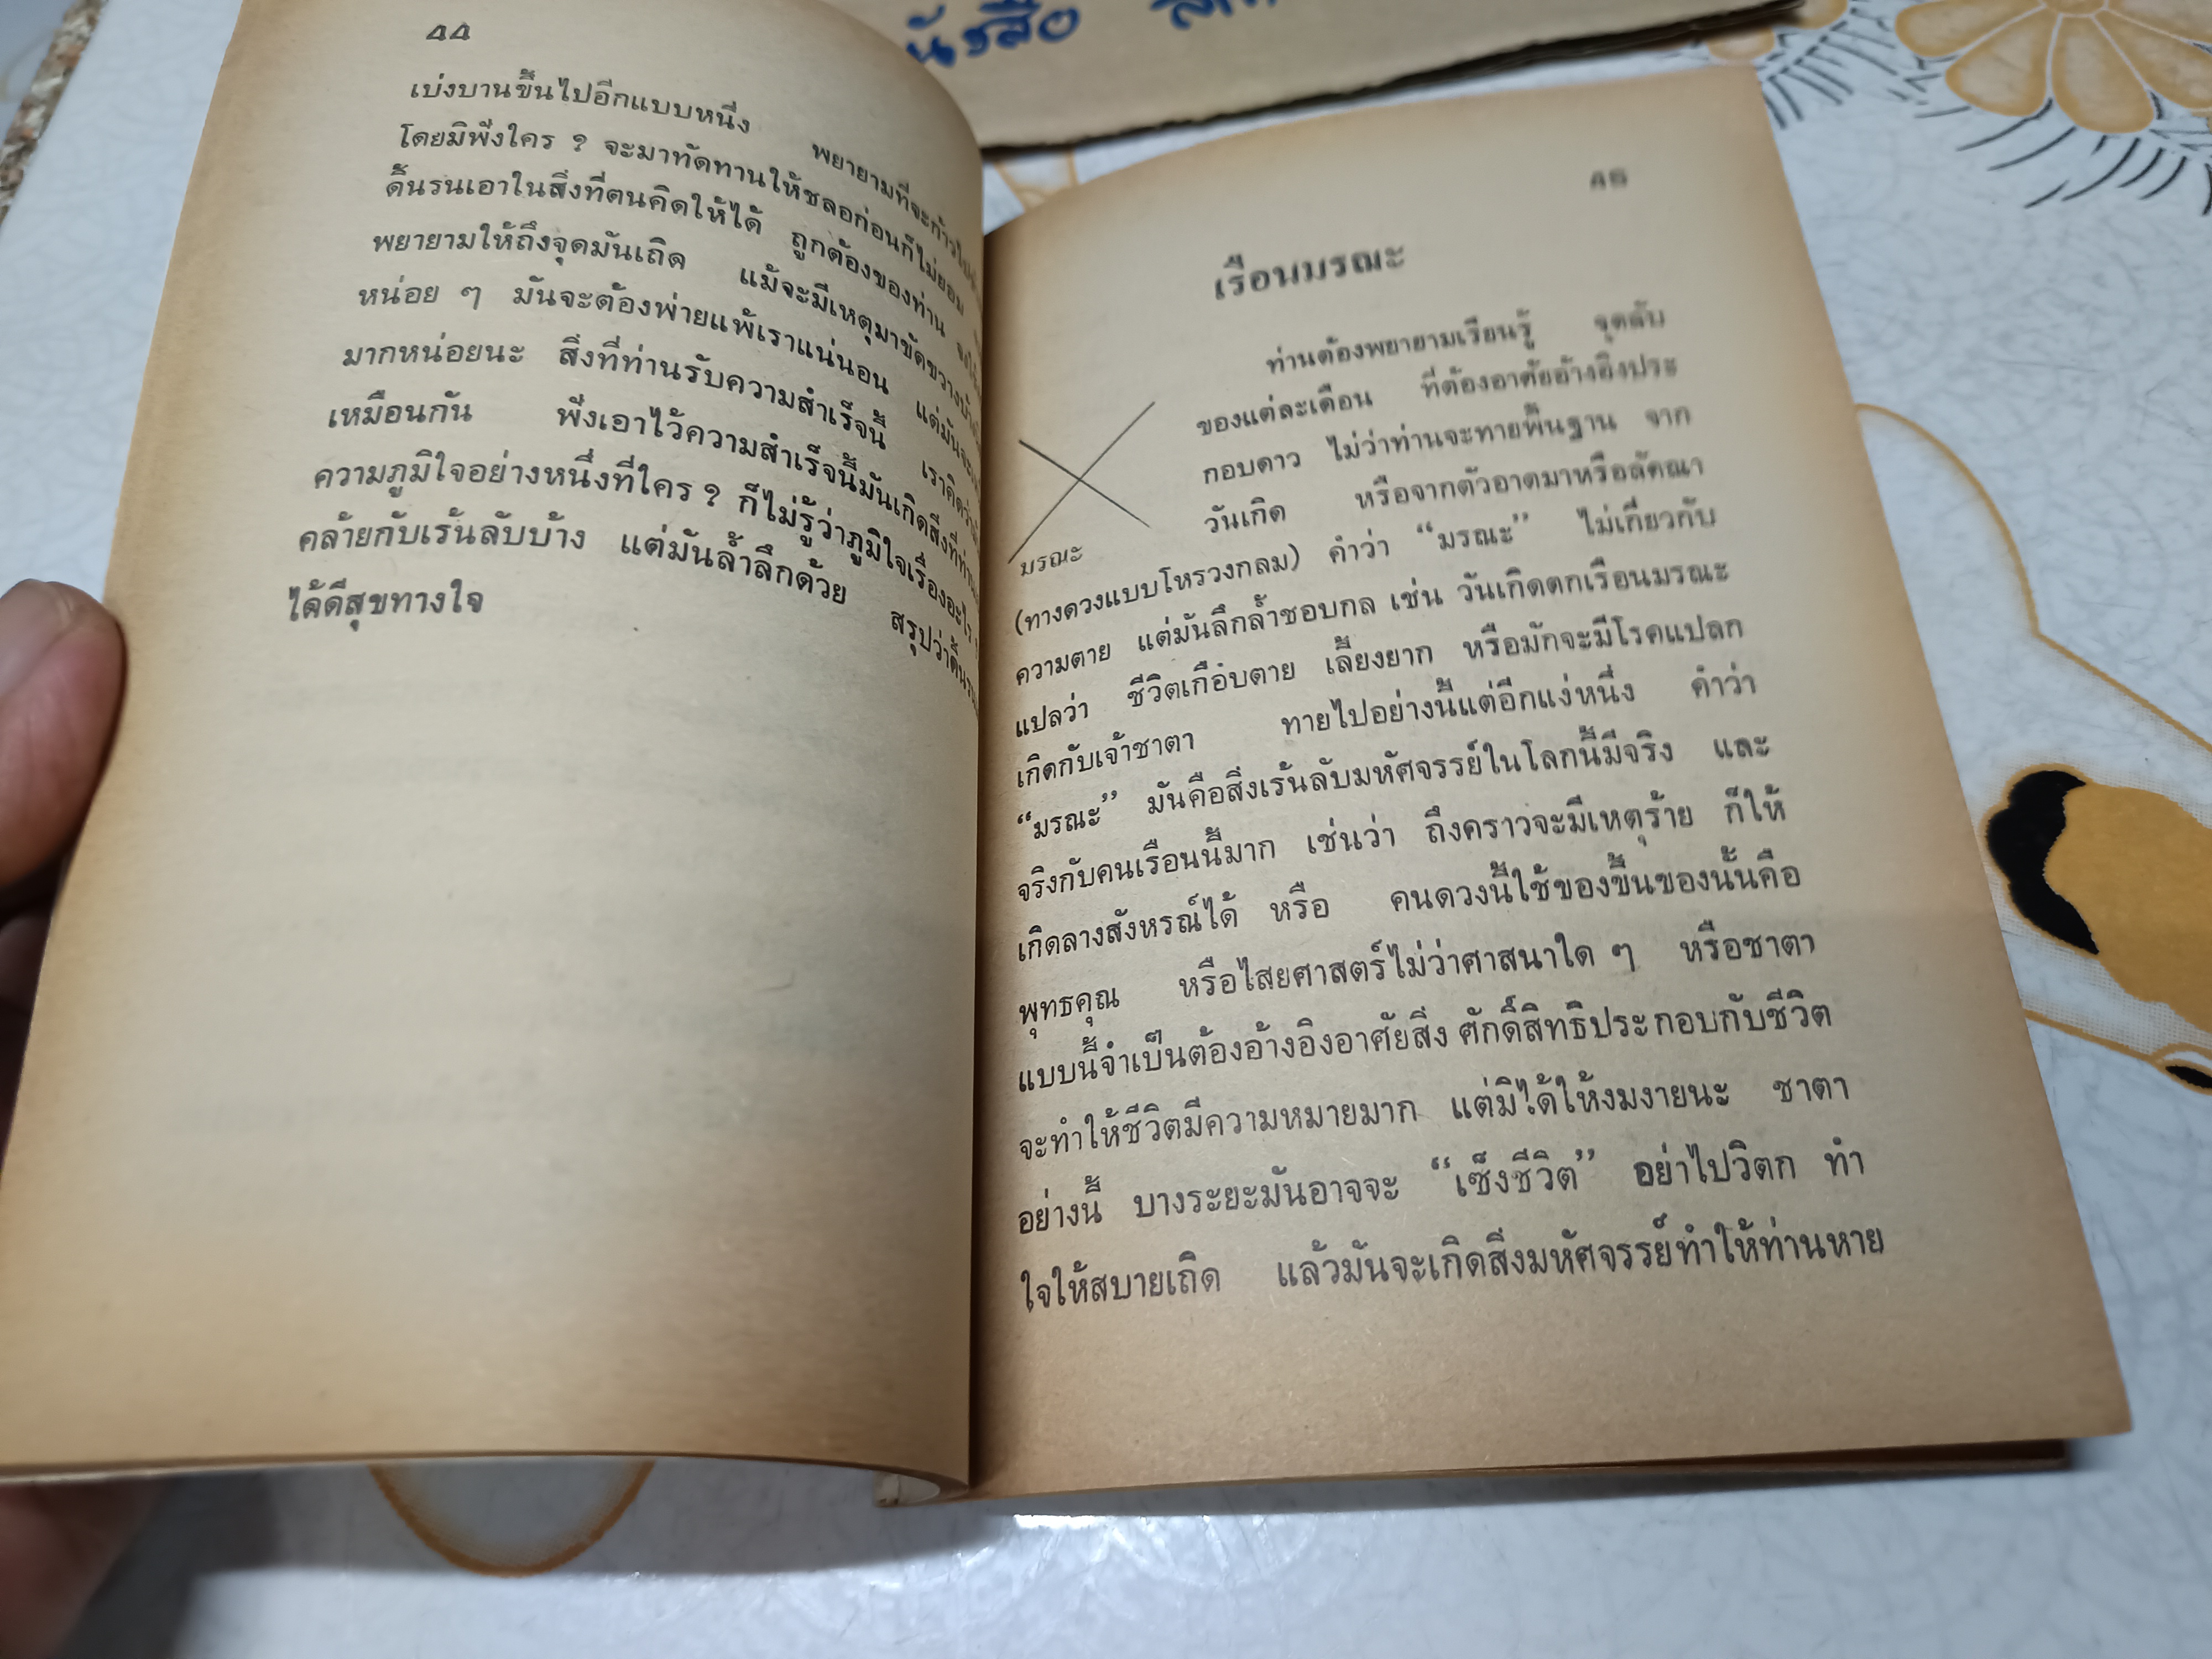 44
เบ่งบานขึ้นไปอีกแบบหนึ่ง พยายามที่จะก้าวไป
โดยมิพึ่งใคร ? จะมาทัดทานให้ชลอก่อนก็ไม่ยอม
ดิ้นรนเอาในสิ่งที่ตนคิดให้ได้ ถูกต้องของท่าน
พยายามให้ถึงจุดมันเถิด แม้จะมีเหตุมาขัดขวางบ้าง
หน่อย ๆ มันจะต้องพ่ายแพ้เราแน่นอน แต่มันจะ
มากหน่อยนะ สิ่งที่ท่านรับความสำเร็จนี้ เราคิดว่า
เหมือนกัน พึงเอาไว้ความสำเร็จนี้มันเกิดสิ่งที่
ความภูมิใจอย่างหนึ่งที่ใคร ? ก็ไม่รู้ว่าภูมิใจเรื่องอะไร
คล้ายกับเร้นลับบ้าง แต่มันล้ำลึกด้วย สรุปว่าดิ้นรน
ได้ดีสุขทางใจ
นังสือ
45
เรือนมรณะ
ท่านต้องพยายามเรียนรู้ จุดลับ
ของแต่ละเดือน ที่ต้องอาศัยอ้างอิงประ
กอบดาว ไม่ว่าท่านจะทายพื้นฐาน จาก
วันเกิด หรือจากตัวอาตมาหรือลัคณา
มรณะ
(ทางดวงแบบโหรวงกลม) คำว่า “มรณะ” ไม่เกี่ยวกับ
ความตาย แต่มันลึกล้ำชอบกล เช่น วันเกิดตกเรือนมรณะ
แปลว่า ชีวิตเกือบตาย เลี้ยงยาก หรือมักจะมีโรคแปลก
เกิดกับเจ้าชาตา ทายไปอย่างนี้แต่อีกแง่หนึ่ง คำว่า
“มรณะ” มันคือสิ่งเร้นลับมหัศจรรย์ในโลกนี้มีจริง และ
จริงกับคนเรือนนี้มาก เช่นว่า ถึงคราวจะมีเหตุร้าย ก็ให้
เกิดลางสังหรณ์ได้ หรือ คนดวงนี้ใช้ของขึ้นของนั้นคือ
พุทธคุณ หรือไสยศาสตร์ไม่ว่าศาสนาใด ๆ หรือชาตา
แบบนี้จำเป็นต้องอ้างอิงอาศัยสิ่ง ศักดิ์สิทธิประกอบกับชีวิต
จะทำให้ชีวิตมีความหมายมาก แต่มิได้ให้งมงายนะ ชาตา
อย่างนี้ บางระยะมันอาจจะ “เซ็งชีวิต” อย่าไปวิตก ทำ
ใจให้สบายเถิด แล้วมันจะเกิดสิ่งมหัศจรรย์ทำให้ท่านหาย